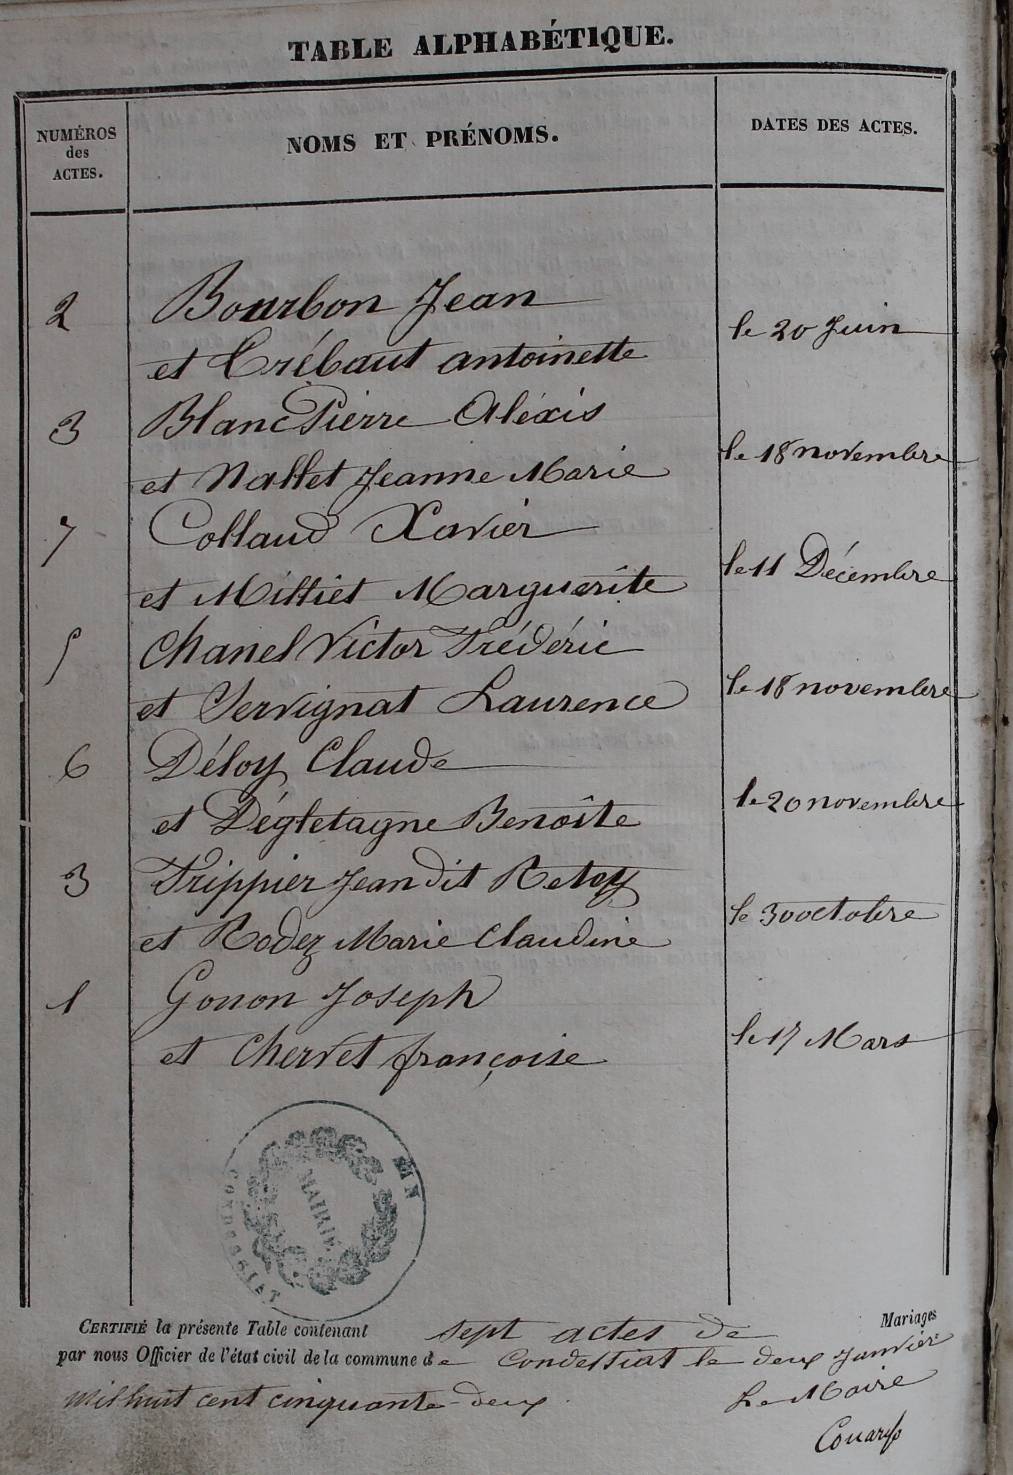 TABLE ALPHABÉTIQUE.
NUMÉROS
des
ACTES.
NOMS ET PRÉNOMS.
DATES DES ACTES.
2 Bourbon Jean
et Crébaut antoinette le 20 Juin
3 Blanc Pierre Aléxis
et Nallet Jeanne Marie le 18 novembre
7 Collaud Xavier
et Milliet Marguerite le 11 Décembre
5 Chanel Victor Frédéric
et Servignat Laurence le 18 novembre
6 Déloy Claude
et Dégletagne Benoîte le 20 novembre
3 Frippier Jean dit
et Rodez Marie Claudine le 30 octobre
1 Gonon Joseph
et Chervet françoise le 17 Mars
MAIRIE
CONDESSIAT
CERTIFIÉ la présente Table contenant sept actes de Mariages
par nous Officier de l'état civil de la commune de Condessiat le deux Janvier
mil huit cent cinquante-deux.
Le Maire